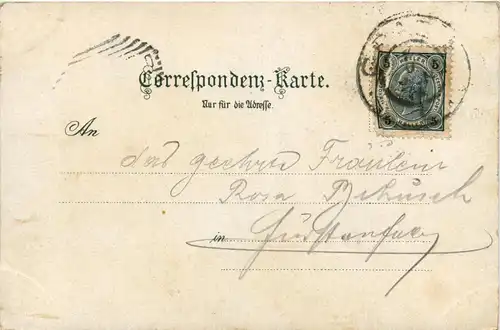 Correspondenz-Karte.
Nur für die Adresse.
5 5
5 5
An
das geehrte Fräulein
Rosa
in Fürstenfeld